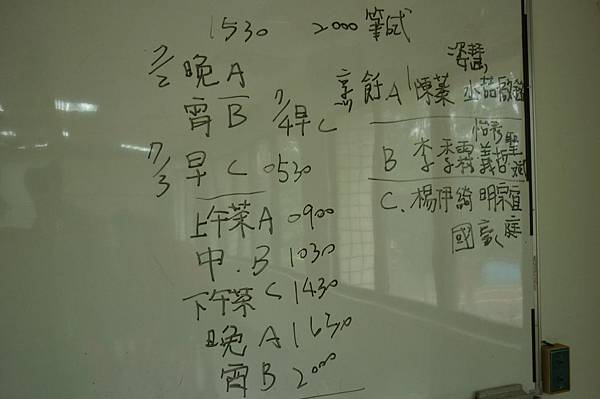 1530 2000 筆試
7/2 晚 A
宵 B 7/4 早 C
7/3 早 C 0530
上午茶 A 0900
中 . B 1030
下午茶 C 1430
晚 A 1630
宵 B 2000
姿慧
烹飪 A 陳蓁
怡秀聖
B 李霈義哲斌
C. 楊伊綺 明宗宜
國豪 庭